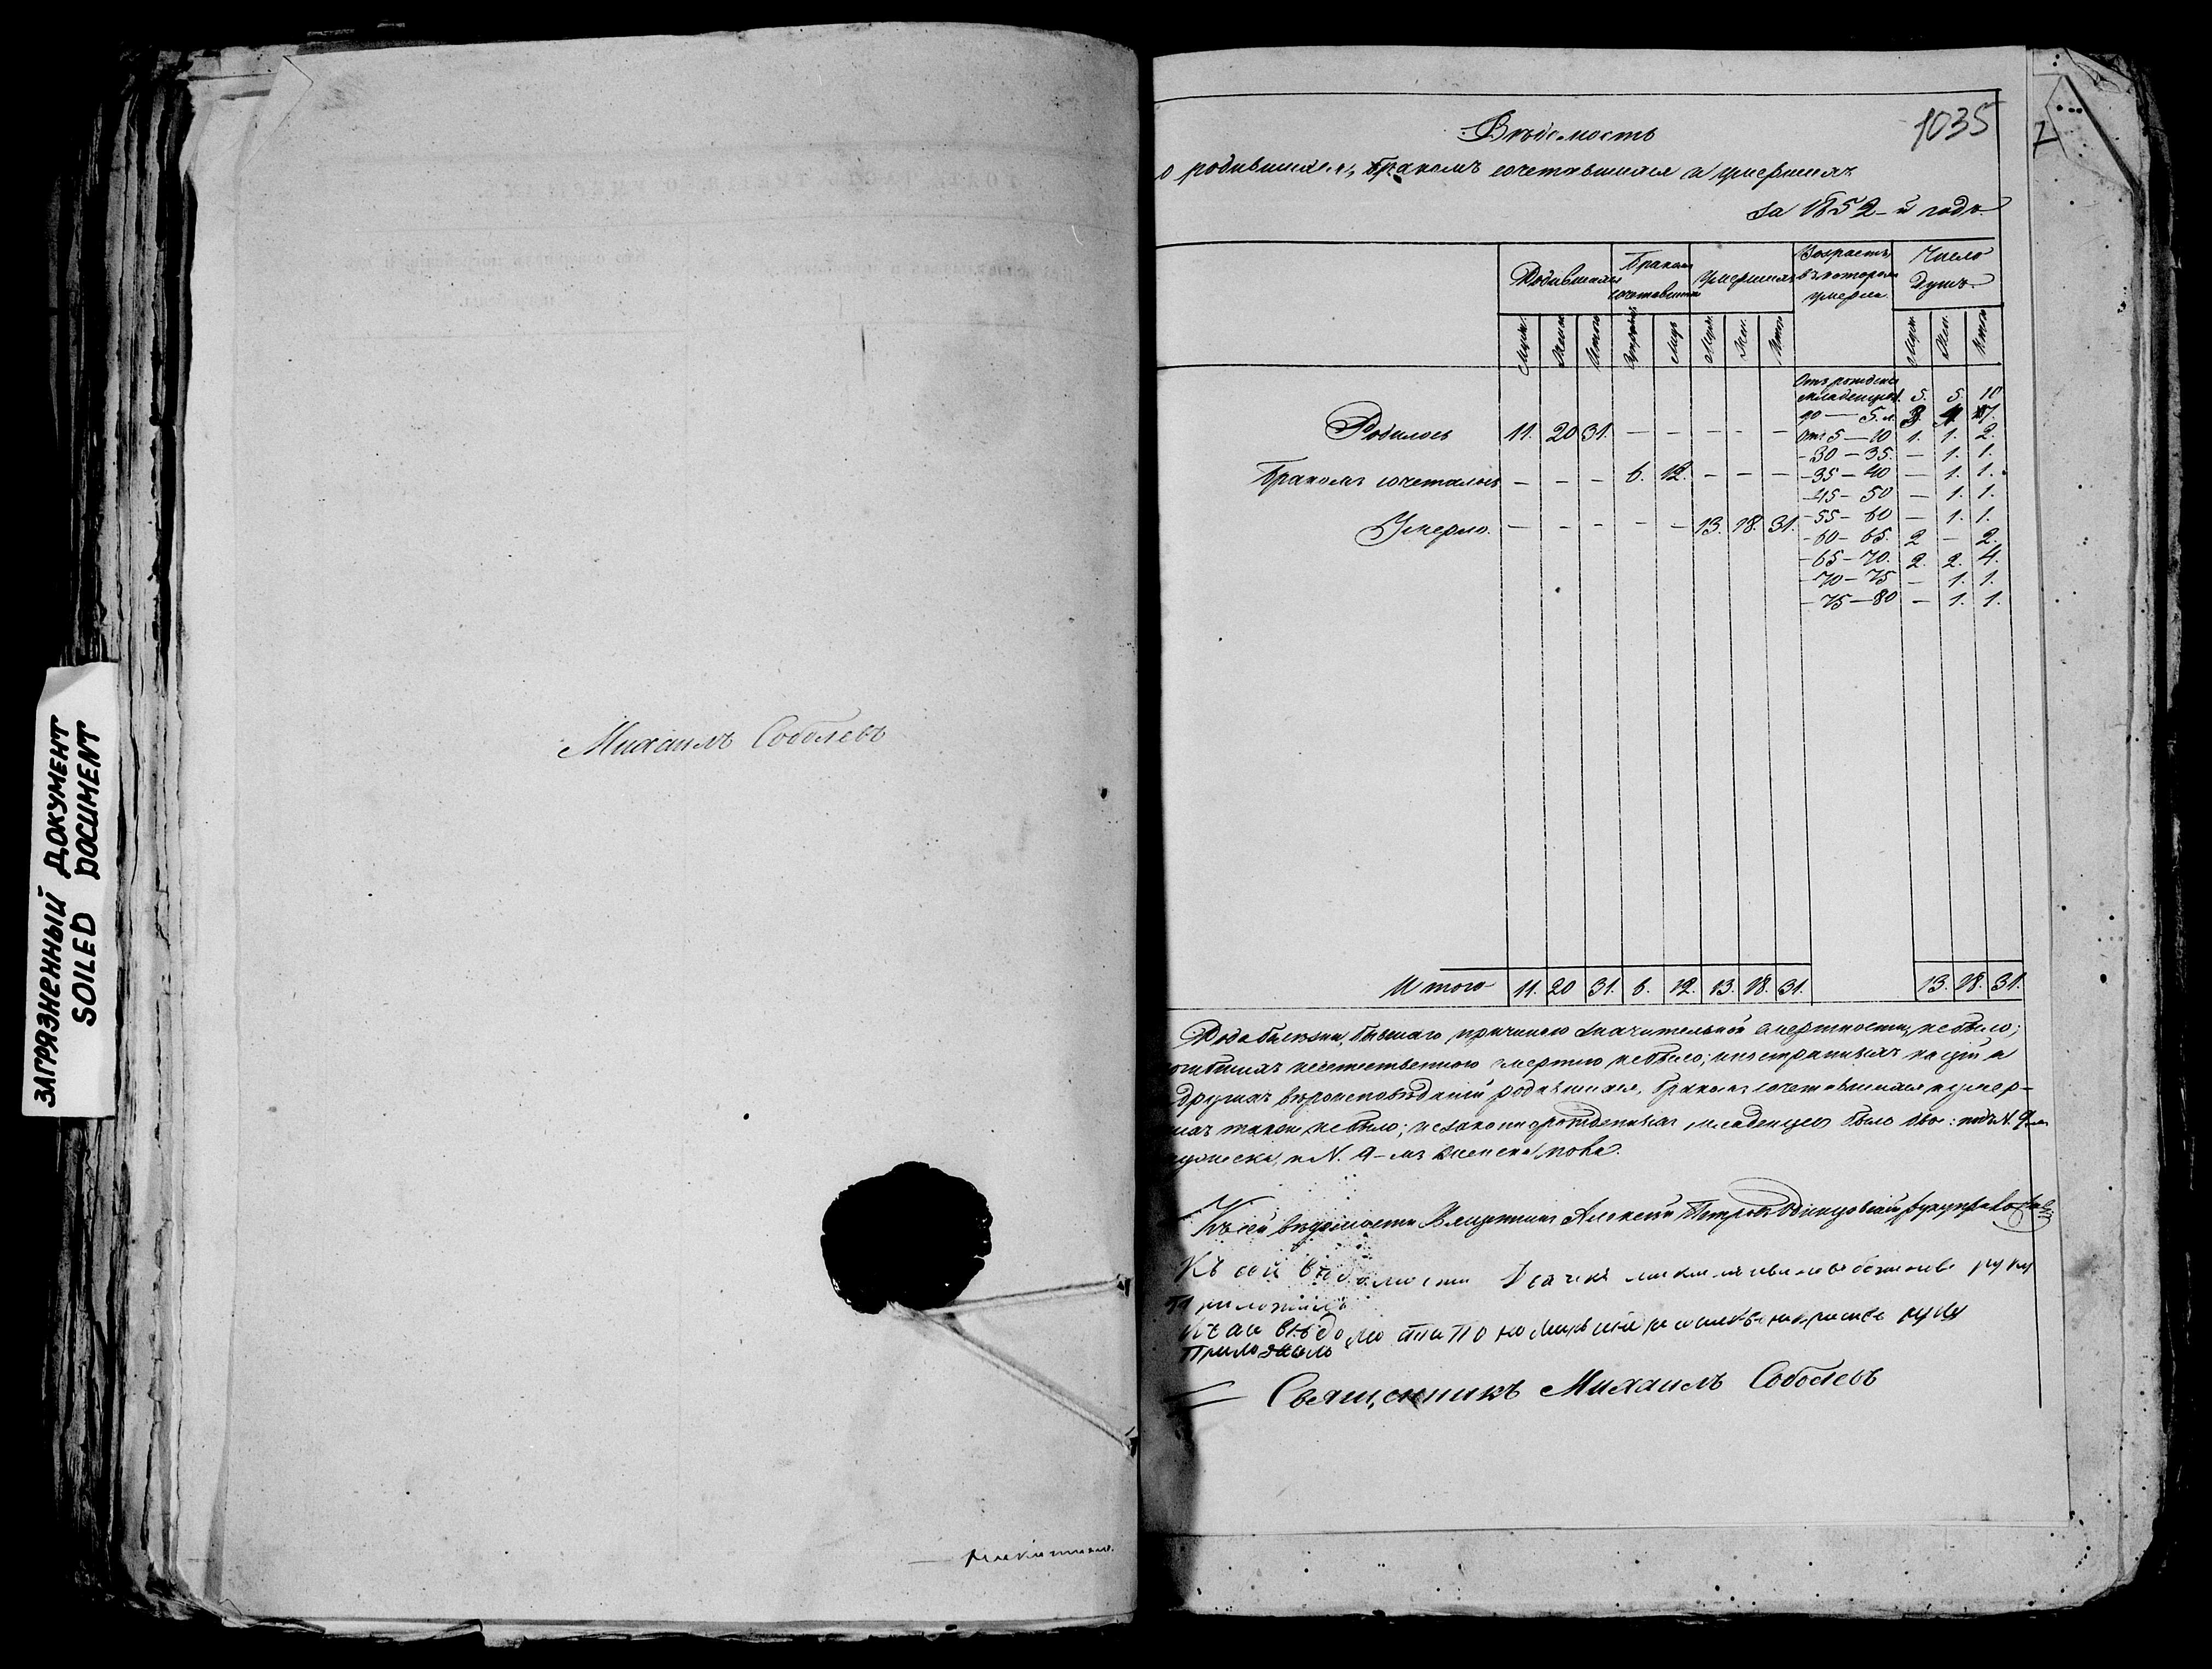 ЗАГРЯЗНЕННЫЙ ДОКУМЕНТ
SOILED DOCUMENT
Михаилъ Соболевъ
1035
Вѣдомость
о родившихся, бракомъ сочетавшихся и умершихъ
за 1852-й годъ.
Родившихся Бракомъ сочетавшихся Умершихъ Возрастъ въ которомъ умерли. Число душъ
Муж. Жен. Итого Супруж. Лицъ Муж. Жен. Итог. Муж. Жен. Итого
Отъ рожденія
младенцев. 5. 5. 10
до — 5. л. 3. 4. 7.
Родилось 11. 20 31. — — — — —
отъ 5 — 10 1. 1. 2.
- 30 — 35. — 1. 1.
Бракомъ сочеталось — — — 6. 12. — — —
- 35 — 40 — 1. 1.
- 45 — 50 — 1. 1.
Умерло. — — — — — 13. 18. 31.
- 55 — 60 — 1. 1.
- 60 — 65. 2 — 2.
- 65 — 70. 2. 2. 4.
- 70 — 75 — 1. 1.
- 75 — 80 — 1. 1.
Итого 11. 20 31. 6. 12. 13. 18. 31. 13. 18. 31.
Рода болѣзни, бывшаго причиною значительной смертности, не было;
неестественною смертію не было; иностранныхъ націй и
другихъ вѣроисповѣданій родившихся, бракомъ сочетавшихся и умер-
также не было; незаконнорожденныхъ младенцевъ было двое: подъ N. 9
мужеска, и N. 9-мъ женска пола.
Къ сей вѣдомости Алексѣй Петровъ руку приложилъ
Къ сей вѣдомости Дьячекъ руку
приложилъ
Къ сей вѣдомости Пономарь руку
Приложилъ
Священникъ Михаилъ Соболевъ